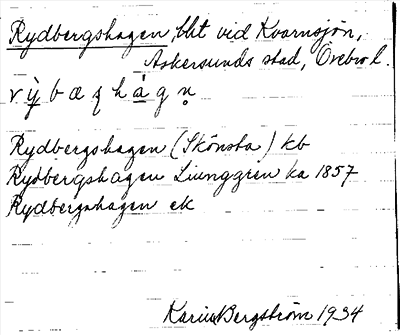 Rydbergshagen, bht vid Kvarnsjön,
Askersunds stad, Örebro l.
Rydbergshagen (Skönsta) kb
Rydbergshagen Liunggren ka 1857
Rydbergshagen ek
Karin Bergström 1934